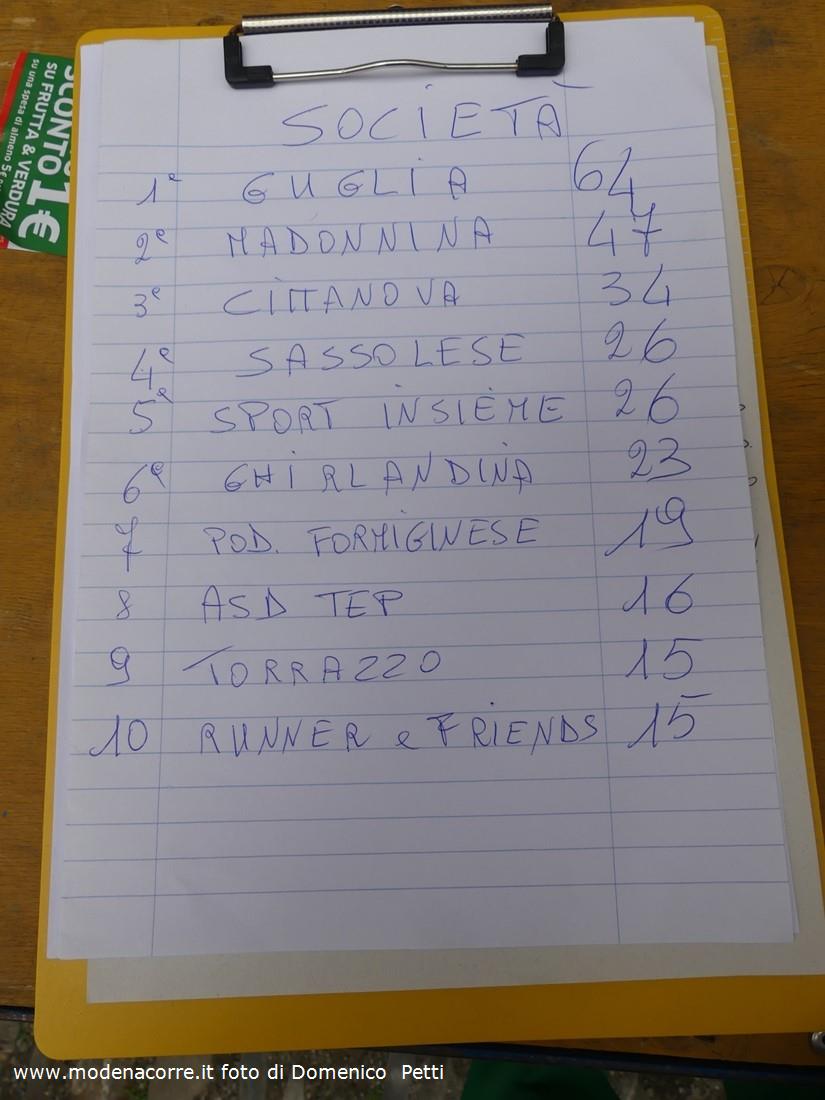 SCONTO 1€
SU FRUTTA & VERDURA
su una spesa di almeno 5€
SOCIETÀ
1ª GUGLIA 64
2ª MADONNINA 47
3ª CITTANOVA 34
4ª SASSOLESE 26
5ª SPORT INSIEME 26
6ª GHIRLANDINA 23
7 POD. FORMIGINESE 19
8 ASD TEP 16
9 TORRAZZO 15
10 RUNNER e FRIENDS 15
www.modenacorre.it foto di Domenico Petti